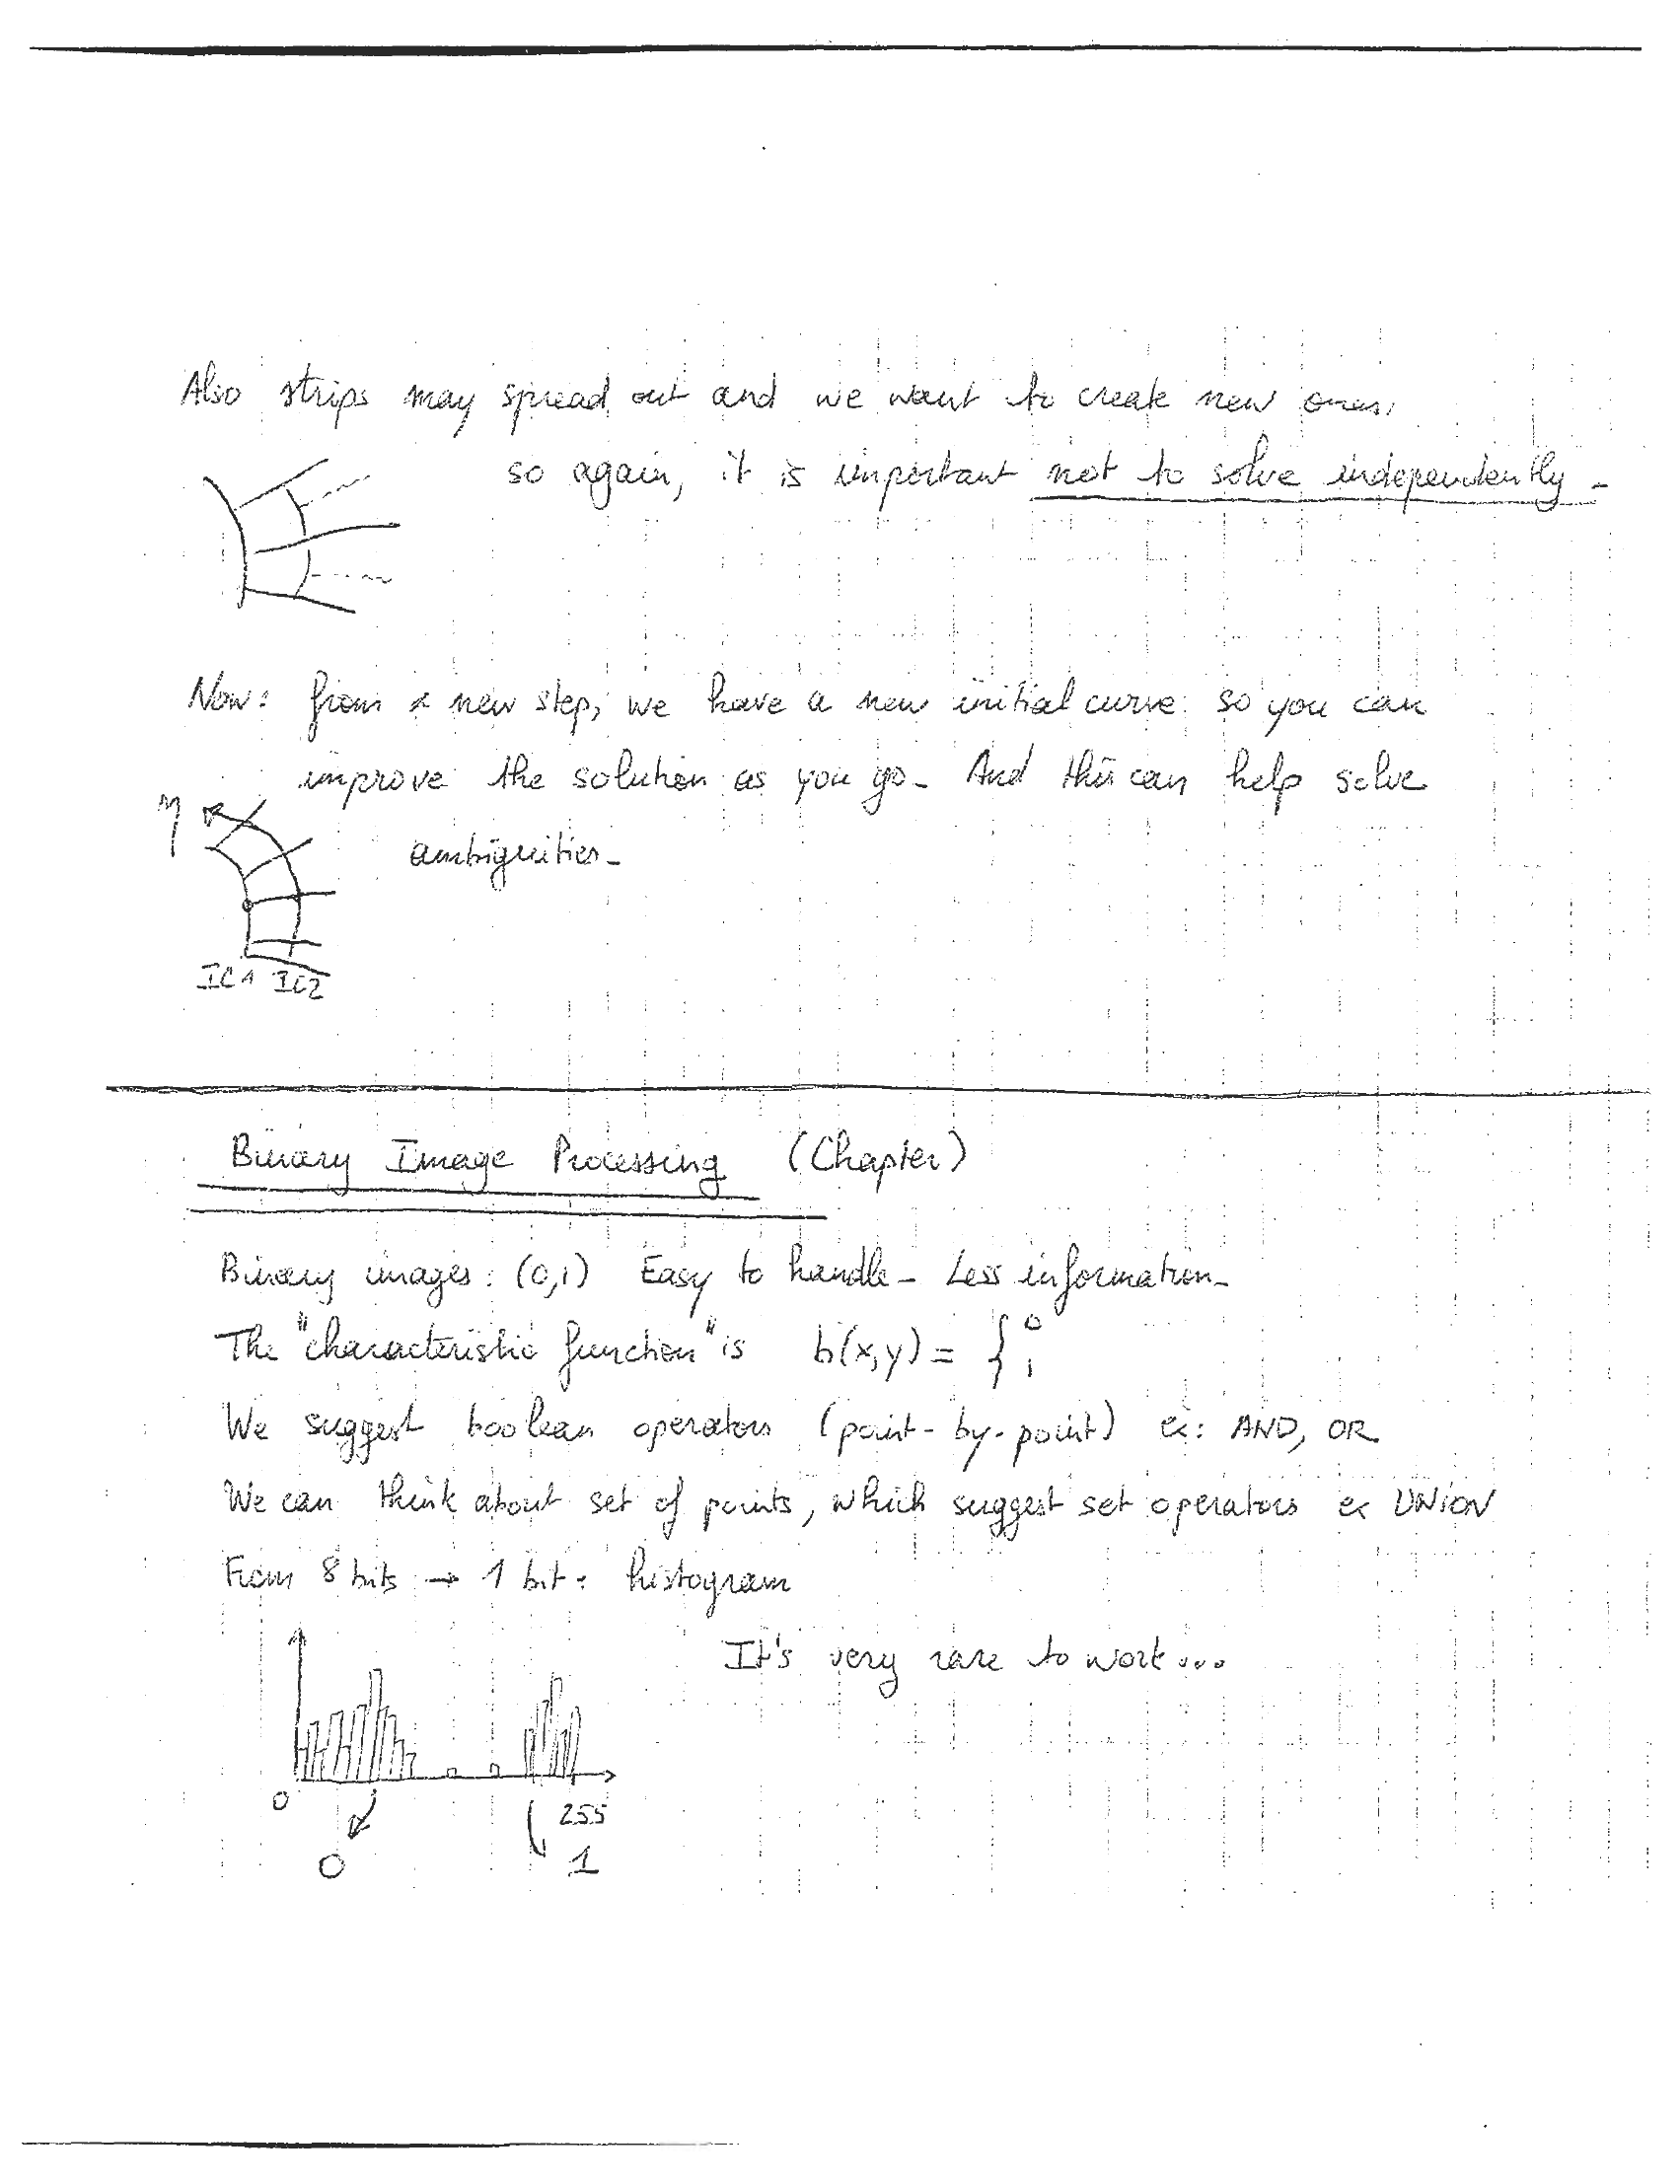 Also strips may spread out and we want to create new ones,
so again, it is important not to solve independently -
Now: from a new step, we have a new initial curve: so you can
improve the solution as you go - And this can help solve
ambiguities -
η
IC1 IC2
Binary Image Processing (Chapter)
Binary images: (0,1) Easy to handle - Less information -
The "characteristic function" is b(x,y) = { 0
1
We suggest boolean operators (point-by-point) ex: AND, OR
We can think about set of points, which suggest set operators ex UNION
From 8 bits → 1 bit: histogram
It's very rare to work...
0 255
0 1